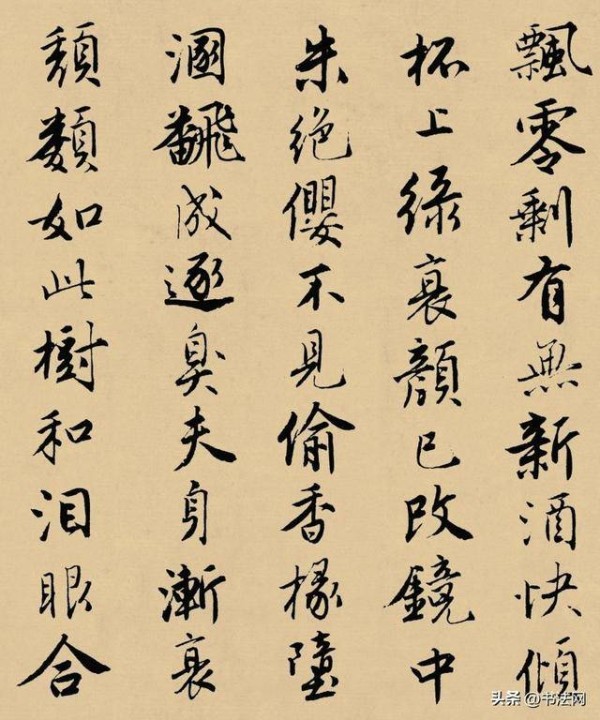 飄零剩有無新酒快傾
杯上緑衰顔已改鏡中
朱絶纓不見偷香椽墮
溷飜成逐臭夫身漸衰
頽類如此樹和泪眼合
头条 @书法网